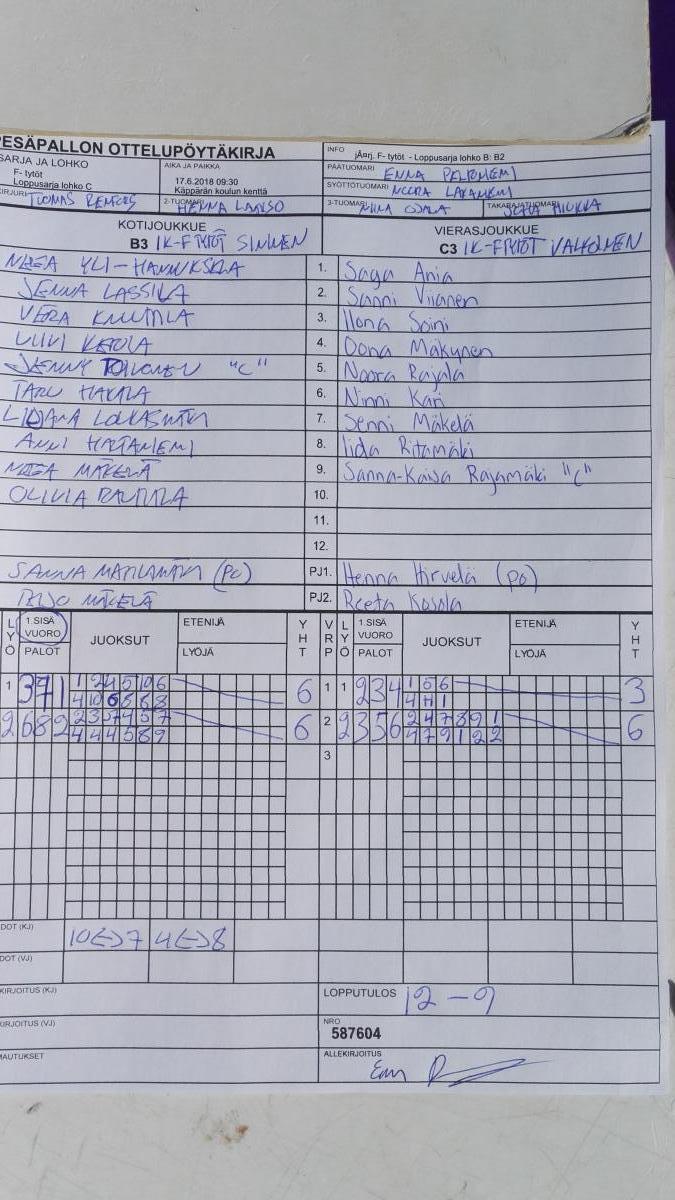 PESÄPALLON OTTELUPÖYTÄKIRJA
SARJA JA LOHKO
F- tytöt
Loppusarja lohko C
AIKA JA PAIKKA
17.6.2018 09:30
Käppärän koulun kenttä
INFO
jÄrj. F- tytöt - Loppusarja lohko B: B2
PÄÄTUOMARI ENNA PELTONIEMI
SYÖTTÖTUOMARI NOORA
KIRJURI TUOMAS
2-TUOMARI HENNA LAAKSO
3-TUOMARI NIINA OJALA
TAKARAJATUOMARI
KOTIJOUKKUE
B3 IK-F TYTÖT SININEN
VIERASJOUKKUE
C3 IK-F TYTÖT VALKOINEN
NEEA YLI-HANNUKSELA 1. Saga Ania
JENNA LASSILA 2. Sanni Viianen
VEERA KNUUTILA 3. Ilona Soini
LIIVI KETOLA 4. Oona Mäkynen
JENNY TOIVONEN "C" 5. Noora Rajala
TARU HAKALA 6. Ninni Kari
7. Senni Mäkelä
ANNI HAITANIEMI 8. Iida Ritamäki
NEEA MÄKELÄ 9. Sanna-Kaisa Rajamäki "C"
OLIVIA RAUTULA 10.
11.
12.
SANNA (PO) PJ1. Henna Hirvelä (po)
MÄKELÄ PJ2. Reeta Kosola
LYÖ 1.SISÄ VUORO PALOT JUOKSUT ETENIJÄ LYÖJÄ YHT VRP LYÖ 1.SISÄ VUORO PALOT JUOKSUT ETENIJÄ LYÖJÄ YHT
1 3 7 1 1 2 4 5 10 6 6 1 1 2 3 4 1 5 6 3
4 10 6 8 8 8 4 11 1
2 6 8 2 2 3 5 7 4 5 7 6 2 2 3 5 6 2 4 7 8 9 1 6
4 4 4 5 8 9 4 7 9 1 2 2
3
DOT (KJ) 10<->7 4<->8
DOT (VJ)
KIRJOITUS (KJ)
LOPPUTULOS 12 - 9
KIRJOITUS (VJ)
NRO
587604
MAUTUKSET
ALLEKIRJOITUS